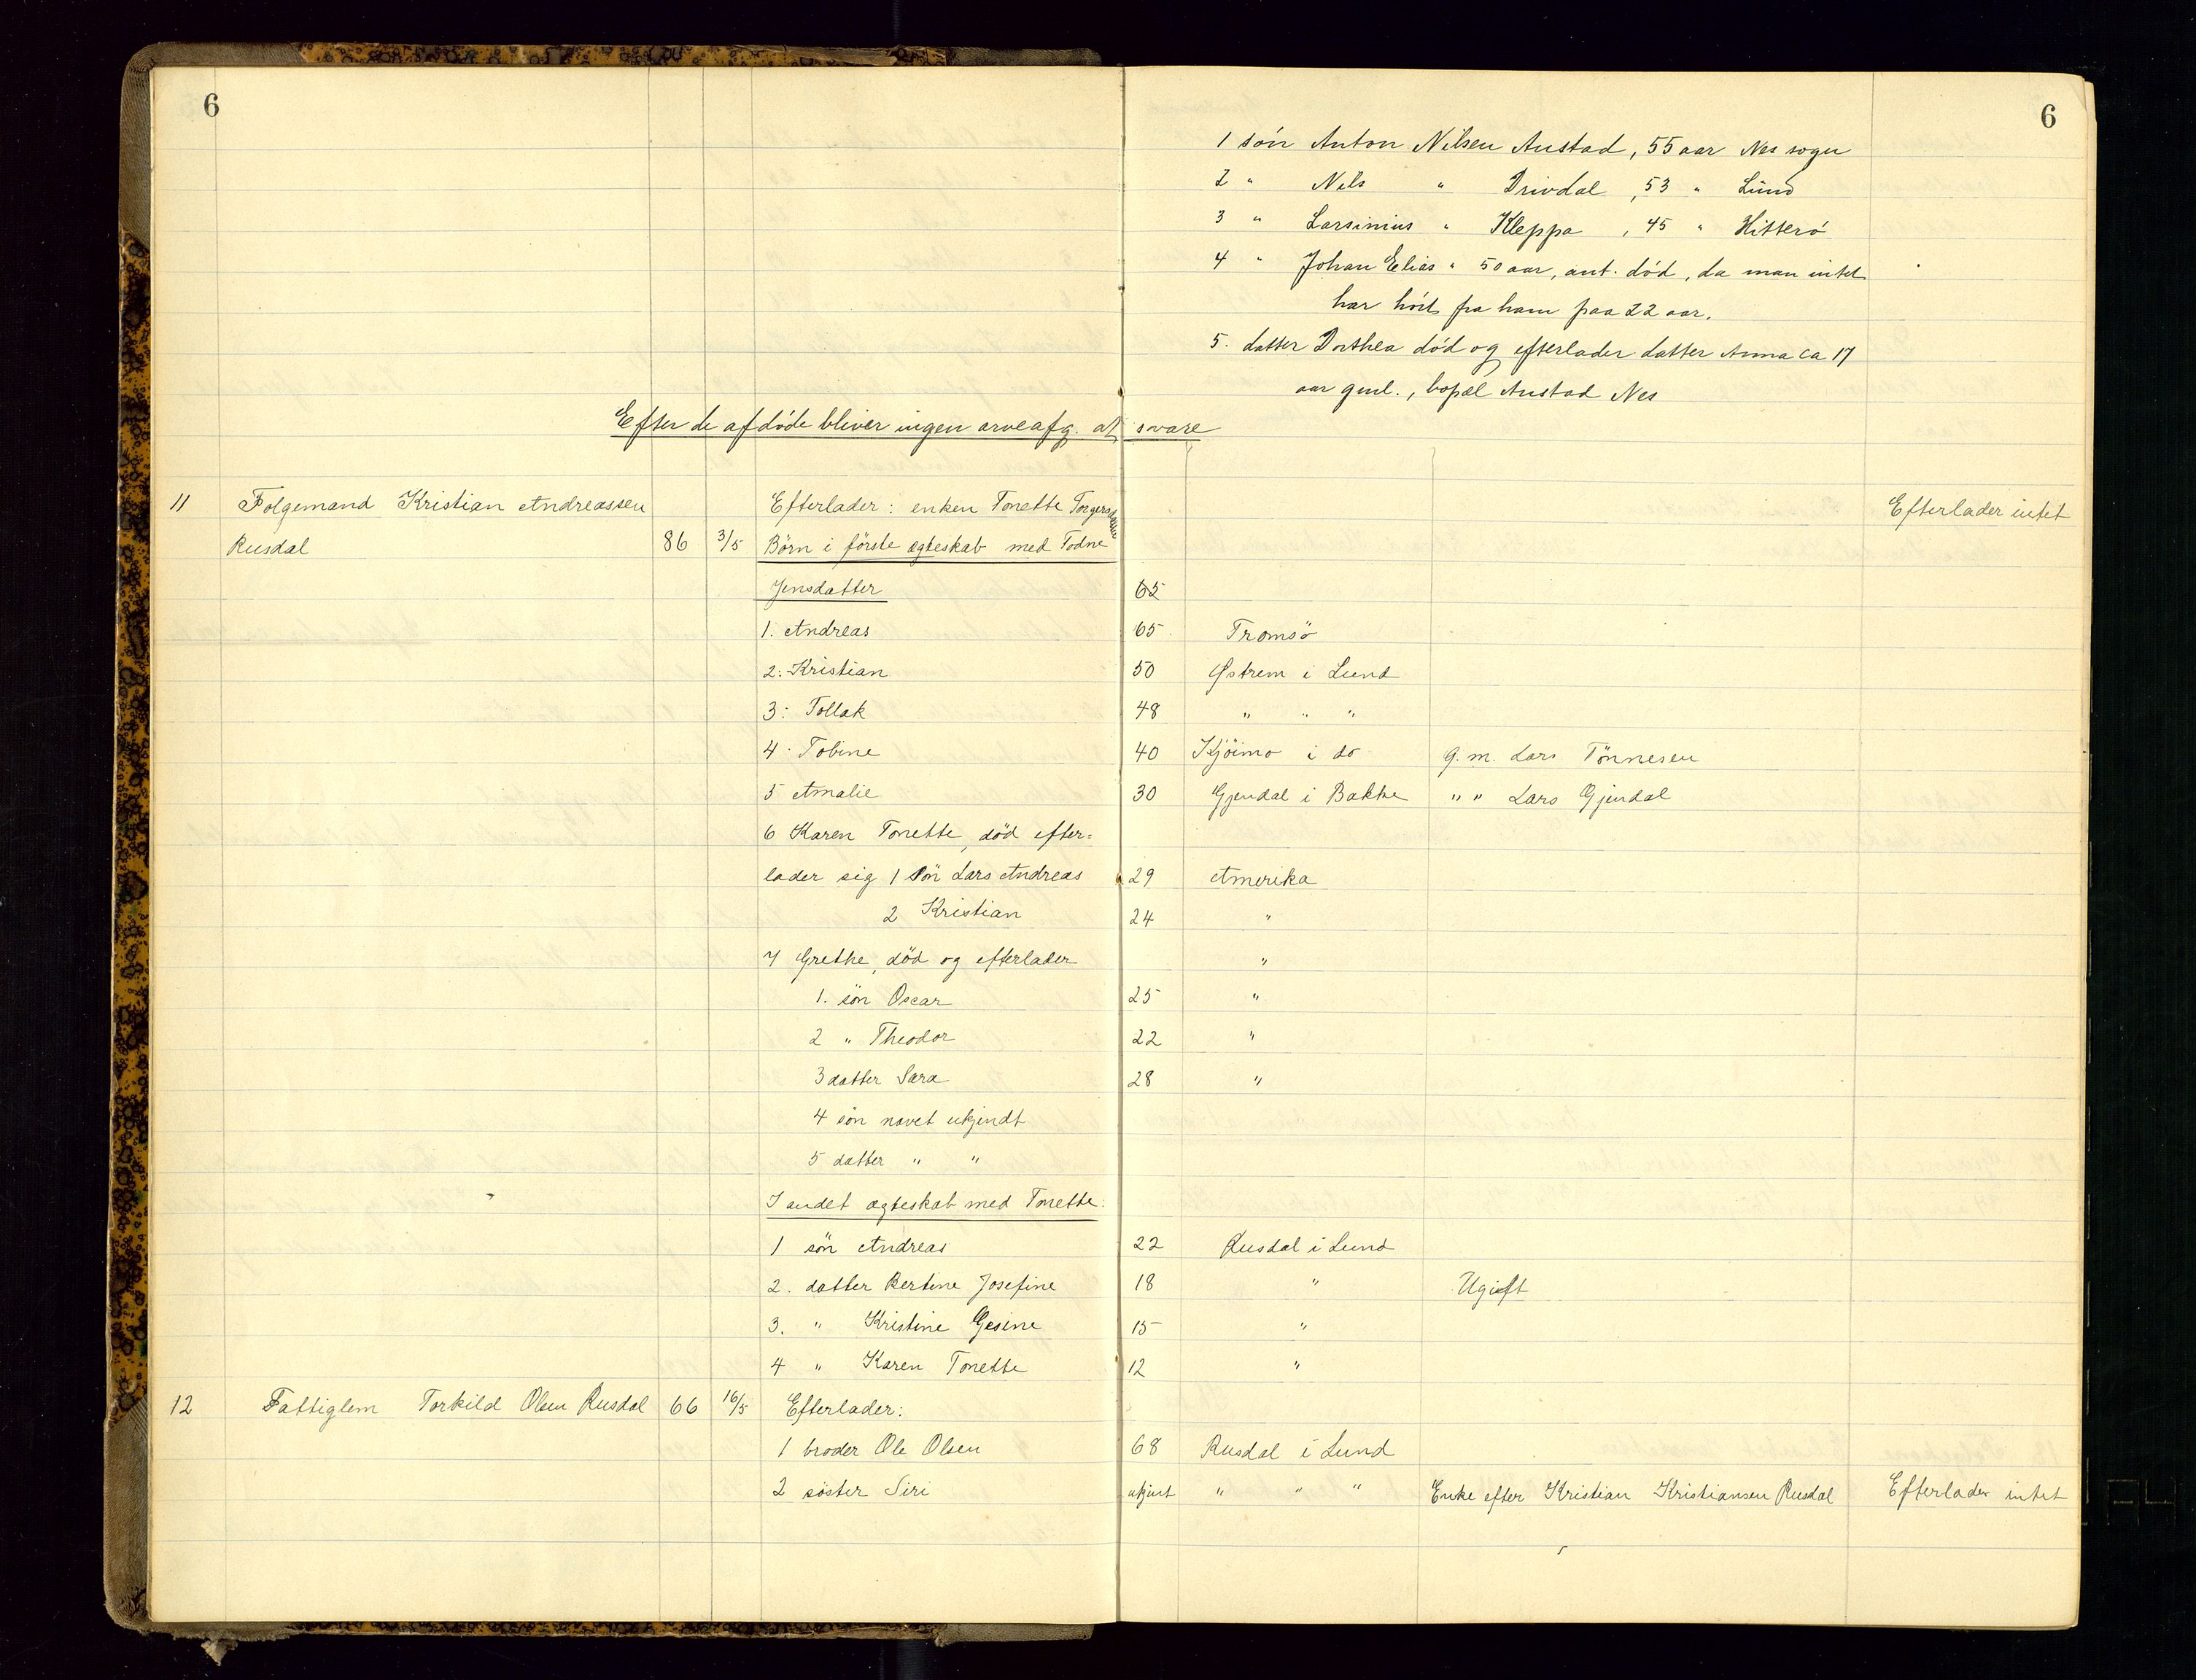 6
6
1 søn Anton Nilsen Austad, 55 aar Nes sogn
2 " Nils " Drivdal, 53 " Lund
3 " Larsinius " Kleppa, 45 " Hitterø
4 " Johan Elias " 50 aar, ant. død, da man intet
har hört fra ham paa 22 aar.
5. datter Dorthea død og efterlader datter Anna ca 17
aar gml., bopæl Austad Nes
Efter de afdøde bliver ingen arveafg. at svare
11 Folgemand Kristian Andreassen Efterlader: enken Tonette Torgersdatter Efterlader intet
Rusdal 86 3/5 Börn i förste ægteskab med Todne
Jensdatter 65
1. Andreas 65 Tromsö
2: Kristian 50 Østrem i Lund
3: Tollak 48 " " "
4. Tobine 40 Kjöimo i do g. m. Lars Tönnesen
5 Amalie 30 Gjendal i Bakke " " Lars Gjendal
6 Karen Tonette, död efter=
lader sig 1 Sön Lars Andreas 29 Amerika
2 Kristian 24 "
7 Grethe, död og efterlader "
1. sön Oscar 25 "
2 " Theodor 22 "
3 datter Sara 28 "
4 sön navet ukjendt
5 datter " "
I andet ægteskab med Tonette.
1 sön Andreas 22 Rusdal i Lund
2. datter Bertine Josefine 18 " Ugift
3. " Kristine Gesine 15 "
4 " Karen Tonette 12 "
12 Fattiglem Torkild Olsen Rusdal 66 16/5 Efterlader:
1 broder Ole Olsen 68 Rusdal i Lund
2 söster Siri ukjent " " " Enke efter Kristian Kristiansen Rusdal Efterlader intet